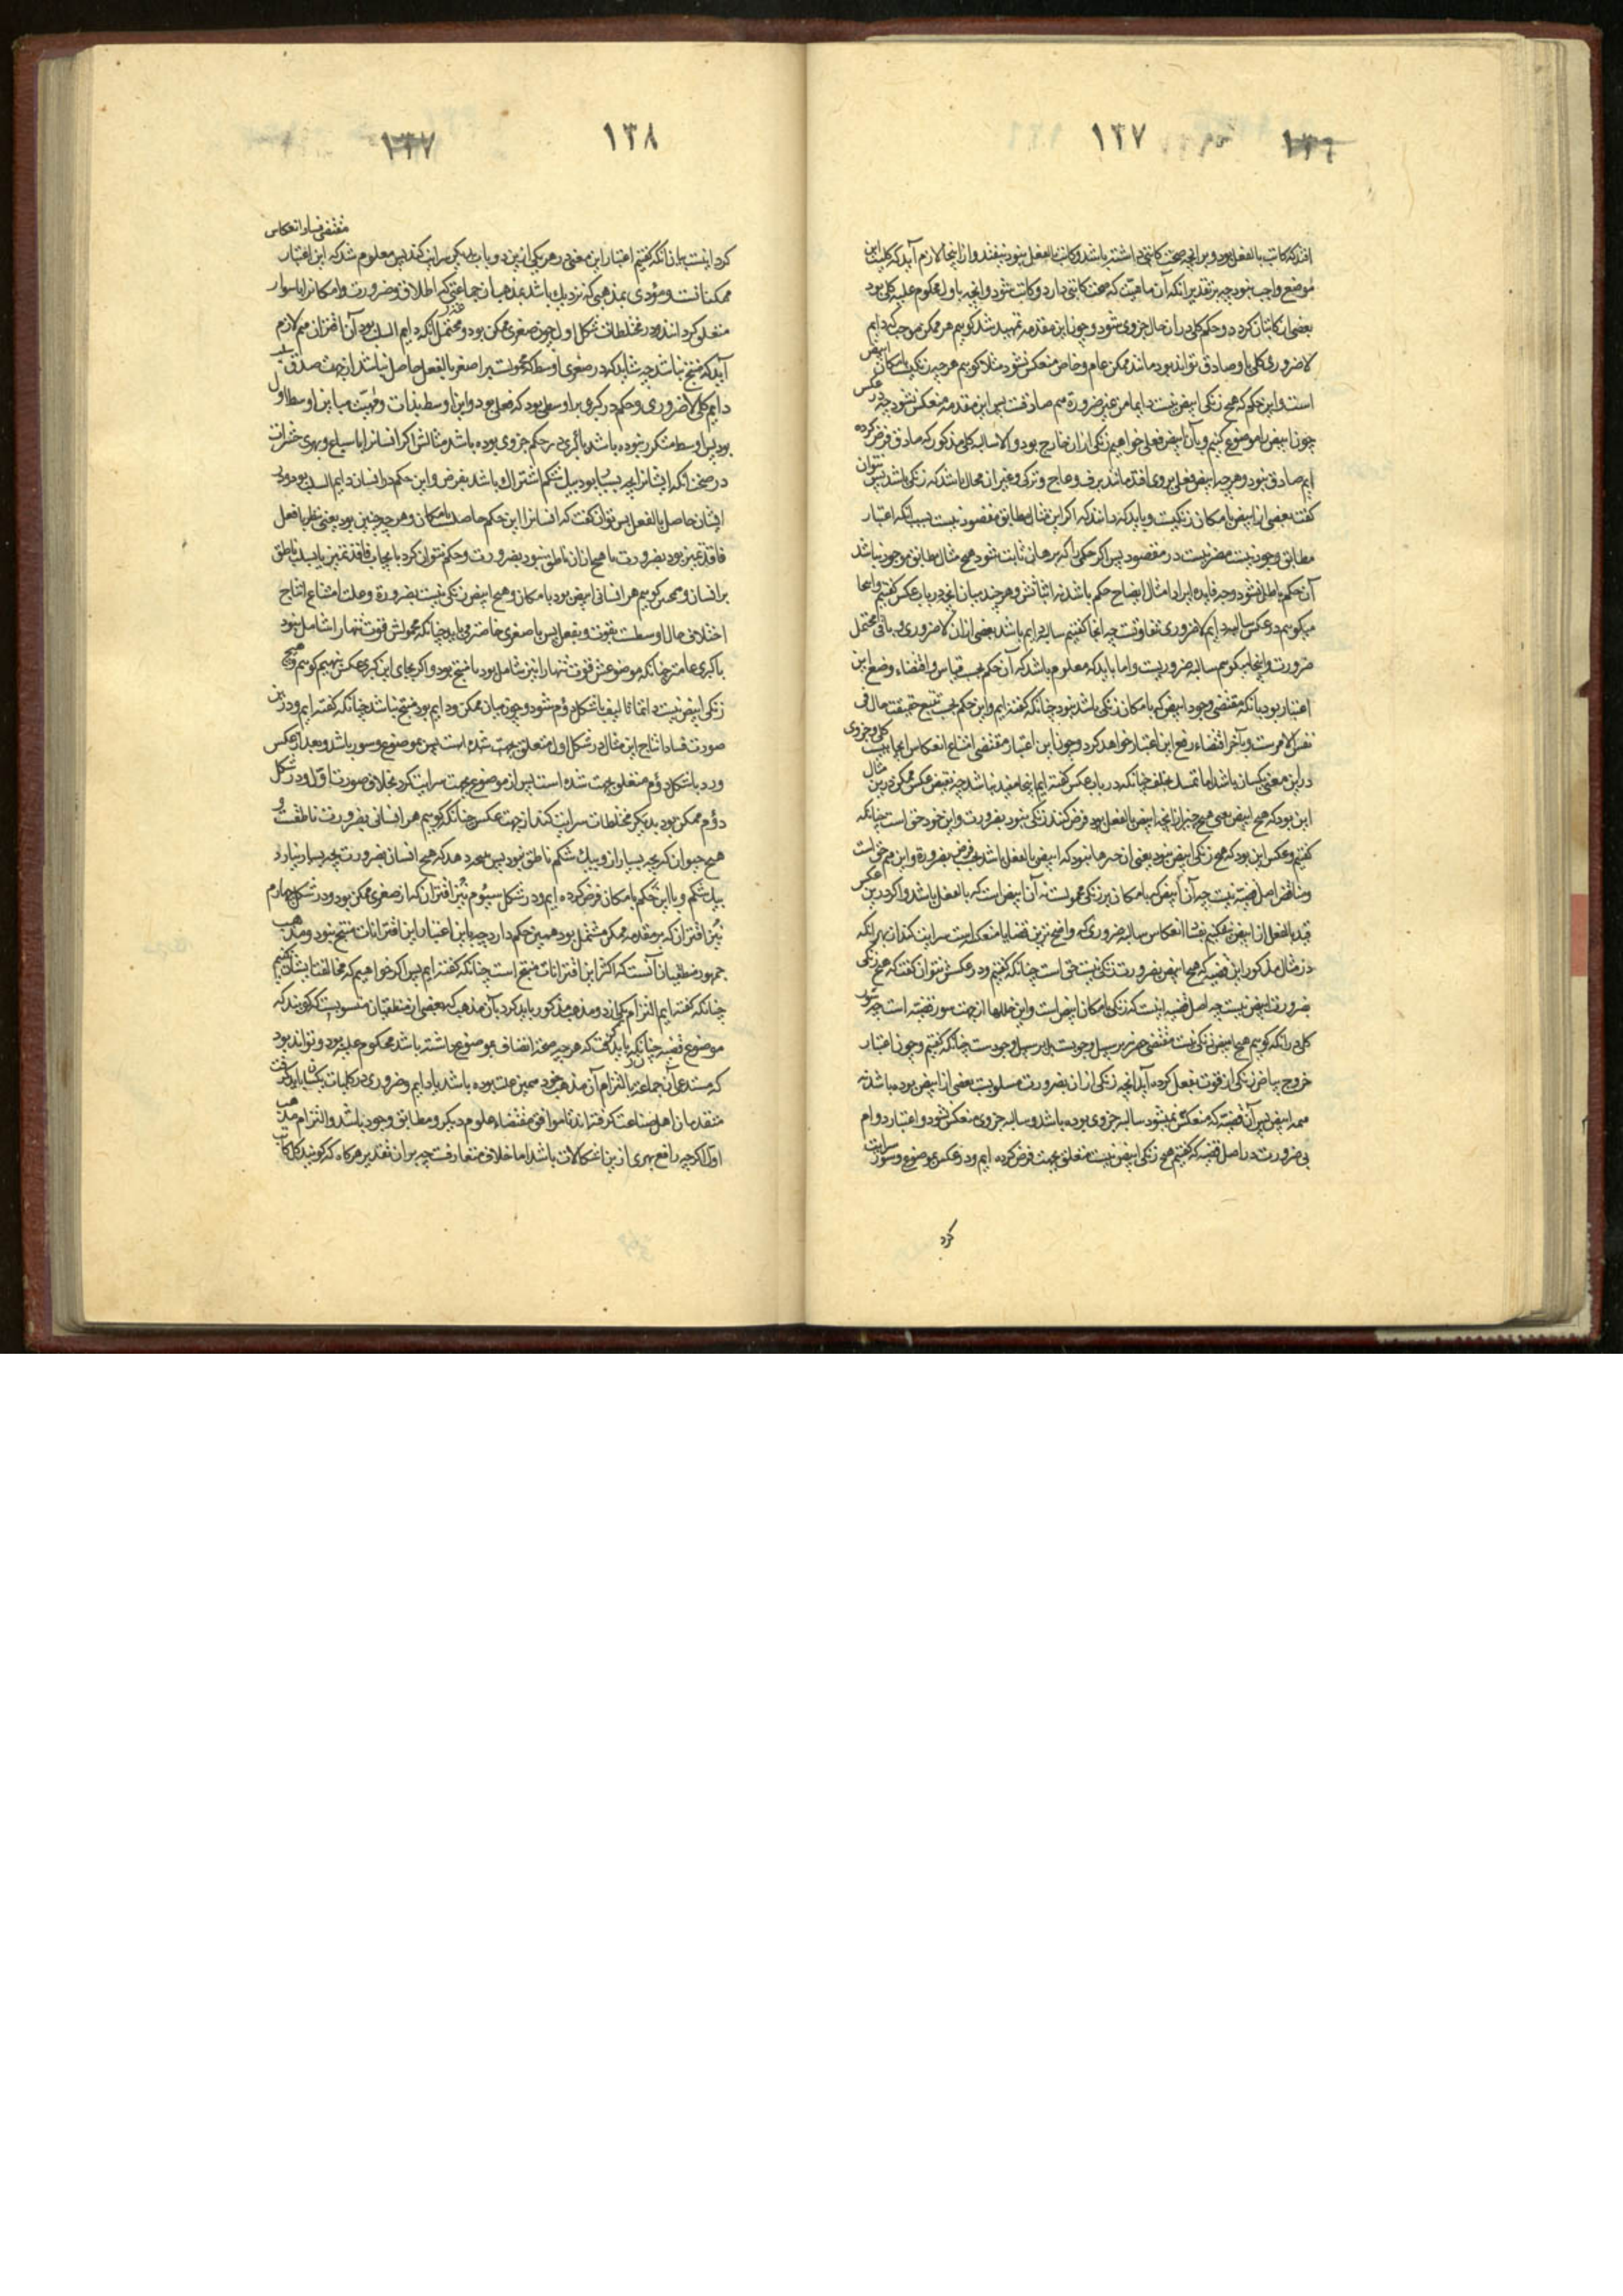 ١٣٦ ١٣٧
افتد که کاتب بالفعل بود و بر انچه صحت کاتبی داشته باشد و کاتب بالفعل نبود نیفتد و از اینجا لازم آید که کلیت این
موضع واجب نبود چه بر تقدیر انکه آن ماهیت که صحت کاتبی دارد و کاتب شود و انچه باول محکوم علیه کلی بود
بعضی از کاتبان کردد و حکم کلی در آن حال جزوی شود و چون این مقدمه تمهید شد کوییم هر ممکن موجبه که دایم
لا ضروری کلی با او صادق تواند بود مانند ممکن عام و خاص منعکس نشود مثلا کوییم هر چه زنکیست بامکان ابیض
است و این حکم که هیچ زنکی ابیض نیست دایما من غیر ضرورة هم صادقست پس این مقدمه منعکس نشود چه در عکس
چون ابیض را موضوع کنیم و بآن ابیض فعلی خواهیم زنکی ازان خارج بود و الا سالبه کلی مذکور که صادق فرض کرده
ایم صادق نبود و هر چه ابیض فعلی بر وی افتد مانند برف و عاج و ترکی و غیر ان محال باشد که زنکی باشد پس نتوان
کفت بعضی از ابیض بامکان زنکیست و باید که دانند که اکر این مثال مطابق مقصود نیست بسبب انکه اعتبار
مطابق وجود نیست مضر نیست در مقصود پس اکر حکمی را که برهان ثابت شود هیچ مثال مطابق موجود نباشد
آن حکم باطل نشود و چه فایده ایراد امثال ایضاح حکم باشد نه اثباتش و هر چند بیان انچه در باب عکس کفتیم و اینجا
میکوییم در عکس سالبه دایم لا ضروری تفاوتست چه انجا کفتیم سالبه دایم باشد بعضی ازان لا ضروری و باقی محتمل
ضرورت و اینجا میکوییم سالبه ضروریست و اما باید که معلوم باشد که آن حکم بحسب قیاس و اقتضاء وضع این
اعتبار بود بانکه مقتضی وجود ابیض که بامکان زنکی باشد نبود چنانکه کفته ایم و این حکم بحسب تتبع حقیقت حال فی
نفس الامرست و بآخر اقتضاء رفع این اعتبار خواهد کرد و چون این اعتبار مقتضی امتناع انعکاس ایجابیست کلی و جزوی
درین معنی یکسان باشد اما تمسک بخلف چنانکه در باب عکس کفته ایم اینجا مفید نباشد چه نقیض عکس ممکن درین مثال
این بود که هیچ ابیض یعنی هیچ چیز از انچه ابیض بالفعل بود فرض کنند زنکی نبود بضرورت و این خود حق است چنانکه
کفتیم و عکس این بود که هیچ زنکی ابیض نبود یعنی ان چیزها نبود که ابیض بالفعل اند بحسب فرض بضرورة و این هم حق است
و مناقض اصل قضیه نیست چه آن ابیض که بامکان بر زنکی محمولست نه آن ابیض است که بالفعل باشد و اکر درین عکس
قید بالفعل از ابیض بیفکنیم فساد انعکاس سالبه ضروری که واضح ترین قضایا منعکسه است سرایت کند از بهر انکه
در مثال مذکور این قضیه که هیچ ابیض بضرورت زنکی نیست حق است چنانکه کفتیم و در عکسش نتوان کفت که هیچ زنکی
بضرورت ابیض نیست چه اصل قضیه اینست که زنکی بامکان ابیض است و این خللها از جهت سور قضیه است چه سور
کلی در انکه کوییم هیچ ابیض زنکی نیست مقتضی حصر نه بر سبیل وجوبست بل بر سبیل وجودست چنانکه کفتیم و چون اعتبار
خروج بیاض زنکی از قوت بفعل کرده آید انچه زنکی ازان بضرورت مسلوبست بعضی از ابیض بوده باشد نه
همه ابیض پس آن قضیه که منعکس میشود سالبه جزوی بوده باشد و سالبه جزوی منعکس نشود و اعتبار دوام
بی ضرورت در اصل قضیه که کفتیم هیچ زنکی ابیض نیست متعلق بجهت فرض کرده ایم و در عکس بموضوع و سور سرایت
کرد
١٣٧ ١٣٨
کرد اینست بیان انکه کفتیم اعتبار این معنی در هر یکی ازین دو باب بدیکری سرایت کند پس معلوم شد که این اعتبار مقتضی فساد انعکاس
ممکناتست و مؤدی بمذهبی که نزدیک باشد بمذهب ان جماعتی که اطلاق و ضرورت و امکان را باسوار
متعلق کرده اند و در مختلطات شکل اول چون صغری ممکن بود و محتمل انکه دایم السلب بود آن اقتران هم لازم
آید که منتج نباشد چه شاید که در صغری اوسط که محمولست بر اصغر بالفعل حاصل نباشد از جهت صدق سلب
دایم کلی لا ضروری و حکم در کبری بر اوسطی بود که فعلی بود و این اوسط بذات و ماهیت مباین اوسط اول
بود پس اوسط متکرر نبوده باشد یا کبری در حکم جزوی بوده باشد مثالش اکر انسانرا با سباع و بهری حشرات
در صحت انکه ایشانرا بچه بسیار بود بیک شکم اشتراک باشد بفرض و این حکم در انسان دایم السلب بود و در
ایشان حاصل بالفعل پس توان کفت که انسانرا این حکم حاصلست بامکان و هر چه چنین بود یعنی نظر با فعل
فاقد تمییز بود بضرورت یا هیچ ازان ناطق نبود بضرورت و حکم نتوان کرد بایجاب فاقد تمییز یا بسلب ناطق
بر انسان و همچنین کوییم هر انسانی ابیض بود بامکان و هیچ ابیض زنکی نیست بضرورة و علت امتناع انتاج
اختلاف حال اوسطست بقوت و بفعل پس یا صغری خاصتر می باید چنانکه محمولش قوت تنها را شامل نبود
یا کبری عامتر چنانکه موضوعش قوت تنها را نیز شامل بود تا منتج بود و اکر بجای این کبری عکس بنهیم کوییم و هیچ
زنکی ابیض نیست دایما تالیف باشکل دوم شود و چون میان ممکن و دایم بود منتج نباشد چنانکه کفته ایم و درین
صورت فساد انتاج این مثال در شکل اول متعلق بجهت شده است پس موضوع و سور باشد و بعد از عکس
و رد باشکل دوم متعلق بجهت شده است پس از موضوع بجهت سرایت کرد بخلاف صورت اول و در شکل
دوم ممکن بود بدیکر مختلطات سرایت کند از جهت عکس چنانکه کوییم هر انسانی بضرورت ناطقست و
هیچ حیوان که بچه بسیار ازو بیک شکم ناطق نبود پس نتیجه دهد که هیچ انسان بضرورت بچه بسیار نیارد
بیک شکم و با این حکم بامکان فرض کرده ایم و در شکل سیوم نیز اقتران که از صغری ممکن بود و در شکل چهارم
نیز اقتران که بر مقدمه ممکن مشتمل بود همین حکم دارد چه با این اعتبار این اقترانات منتج نبود و مذهب
جمهور منطقیان آنست که اکثر این اقترانات منتج است چنانکه کفته ایم پس اکر خواهیم که مخالفت ایشان نکنیم
چنانکه کفته ایم التزام یکی از دو مذهب مذکور باید کرد یا آن مذهب که ببعضی از منطقیان منسوبست که کویند که
موضوع قضیه چنانکه باید کفت که هر چه صحت اتصاف بموضوع داشته باشد محکوم علیه بود و تواند بود
که مستدعی آن جماعة بالتزام آن مذهب خود همین علت بوده باشد یا دایم و ضروری در کلیات یکسان باید کرفت
متقدمان اهل صناعت کرفته اند تا موافق مقتضاء علوم دیکر و مطابق وجود باشد و التزام مذهب
اول اکرچه رافع بهری ازین اشکالات باشد اما خلاف متعارفست چه بران تقدیر هر کاه که کویند کل کاتب